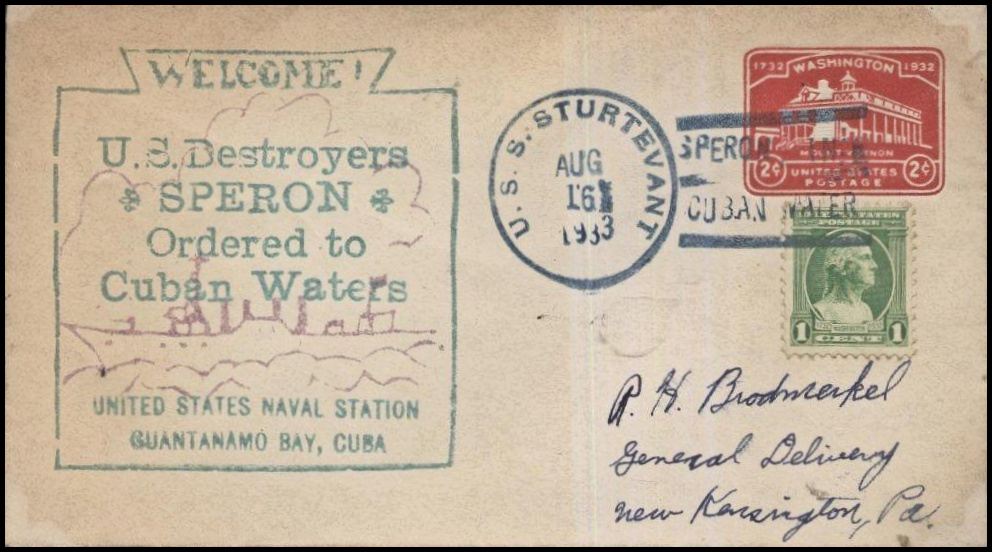 WELCOME!
U.S. Destroyers
SPERON
Ordered to
Cuban Waters
UNITED STATES NAVAL STATION
GUANTANAMO BAY, CUBA
U. S. S. STURTEVANT
AUG
16
1933
SPERON IN
CUBAN WATER
1732 WASHINGTON 1932
MOUNT VERNON
2¢ UNITED STATES 2¢
POSTAGE
UNITED STATES
POSTAGE
1 WASHINGTON 1
R. H. Brodmerkel
General Delivery
New Kensington, Pa.